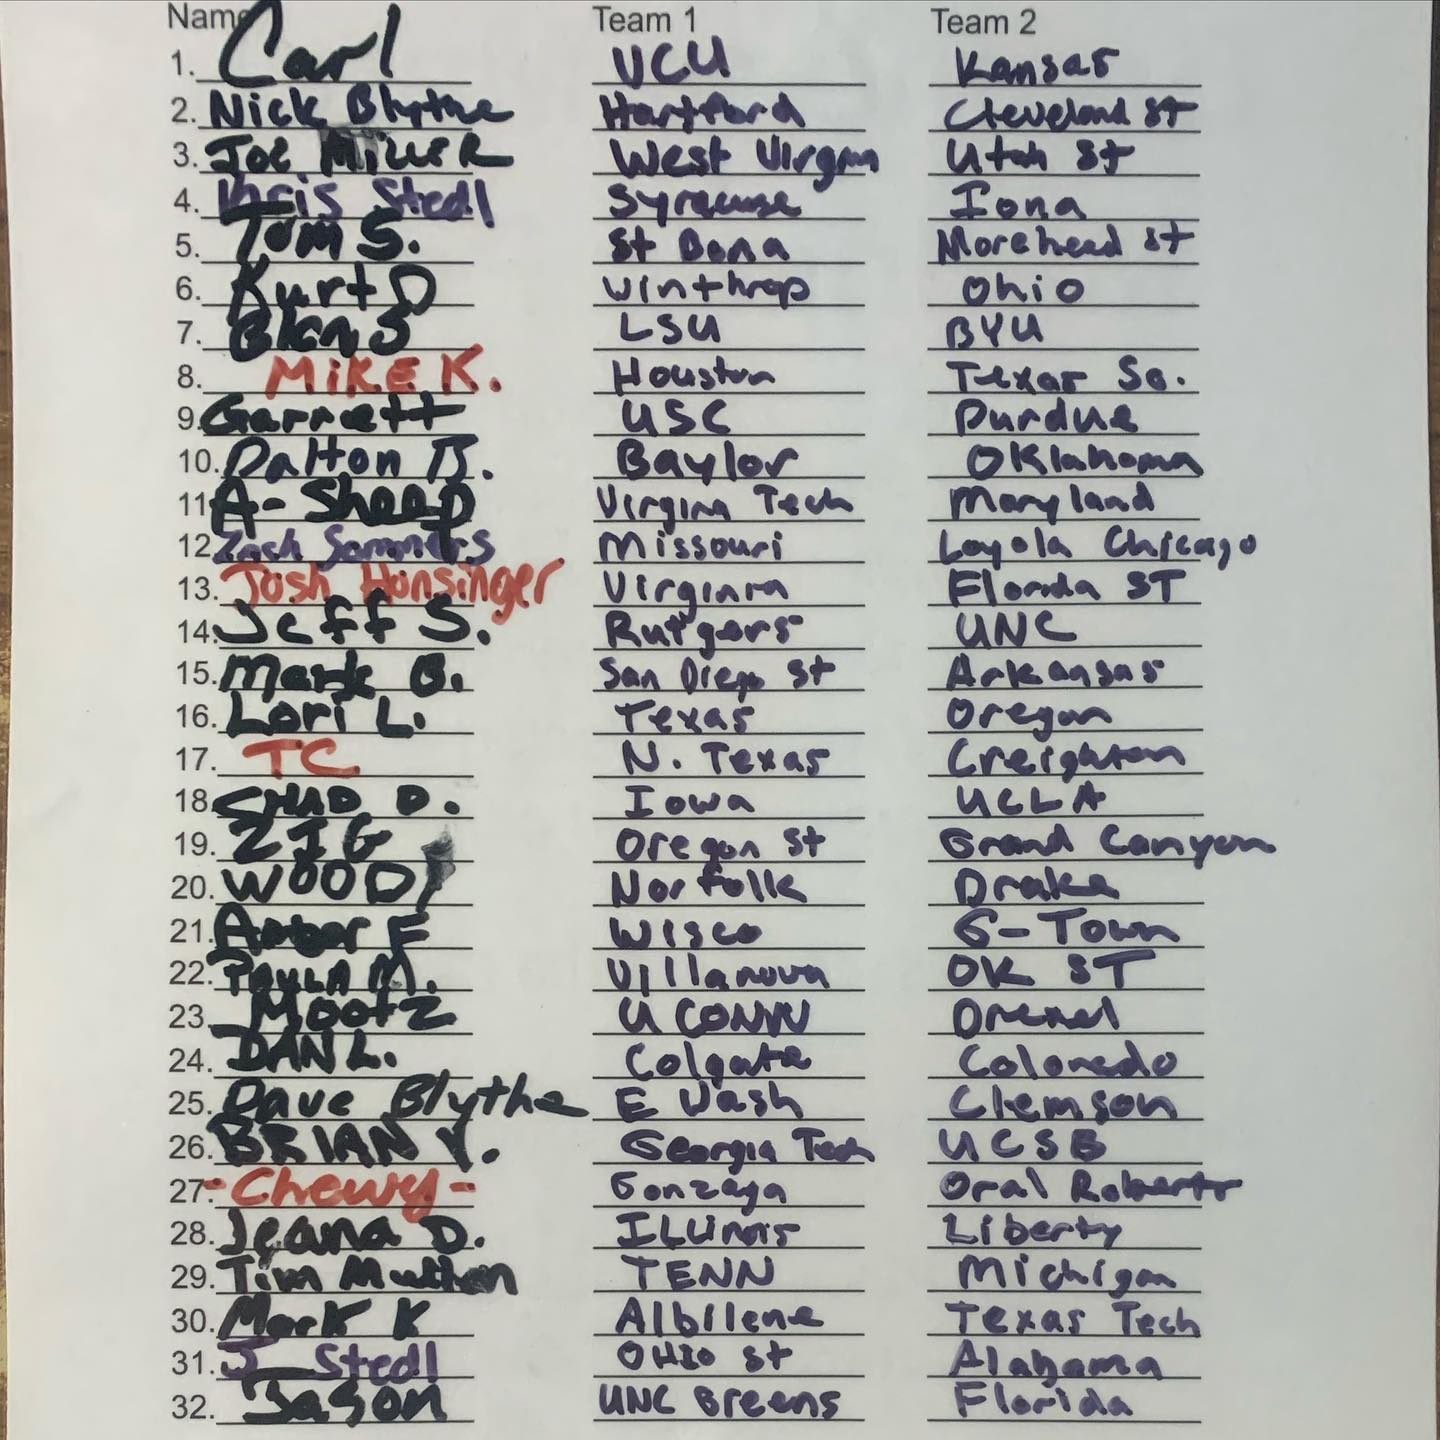 Name Team 1 Team 2
1. Carl VCU Kansas
2. Nick Blythe Hartford Cleveland St
3. Joe Miller West Virginia Utah St
4. Kris Stedl Syracuse Iona
5. Tom S. St Bona Morehead St
6. Kurt D Winthrop Ohio
7. Blan S LSU BYU
8. MIKE K. Houston Texas So.
9. Garrett USC Purdue
10. Dalton B. Baylor Oklahoma
11. A-Sheep Virgina Tech Maryland
12. Zach Sommers Missouri Loyola Chicago
13. Josh Honsinger Virginia Florida ST
14. Jeff S. Rutgers UNC
15. Mark B. San Diego St Arkansas
16. Lori L. Texas Oregon
17. TC N. Texas Creighton
18. CHAD D. Iowa UCLA
19. ZIG Oregon St Grand Canyon
20. WOODY Norfolk Drake
21. Amber F Wisco G-Town
22. PAULA M. Villanova OK ST
23. Mootz U CONN Drexel
24. DAN L. Colgate Colorado
25. Dave Blythe E Wash Clemson
26. BRIAN V. Georgia Tech UCSB
27. -Chewy- Gonzaga Oral Roberts
28. Jeana D. ILLinois Liberty
29. Tim Mullen TENN Michigan
30. Mark K Albilene Texas Tech
31. J Stedl OHIO St Alabama
32. Jason UNC Greens Florida